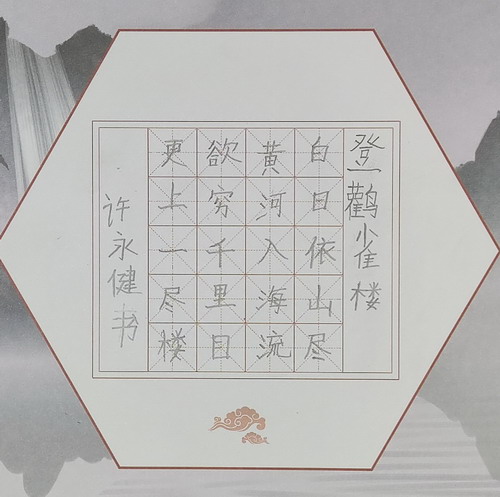 登鹳雀楼
白日依山尽
黄河入海流
欲穷千里目
更上一尽楼
许永健书